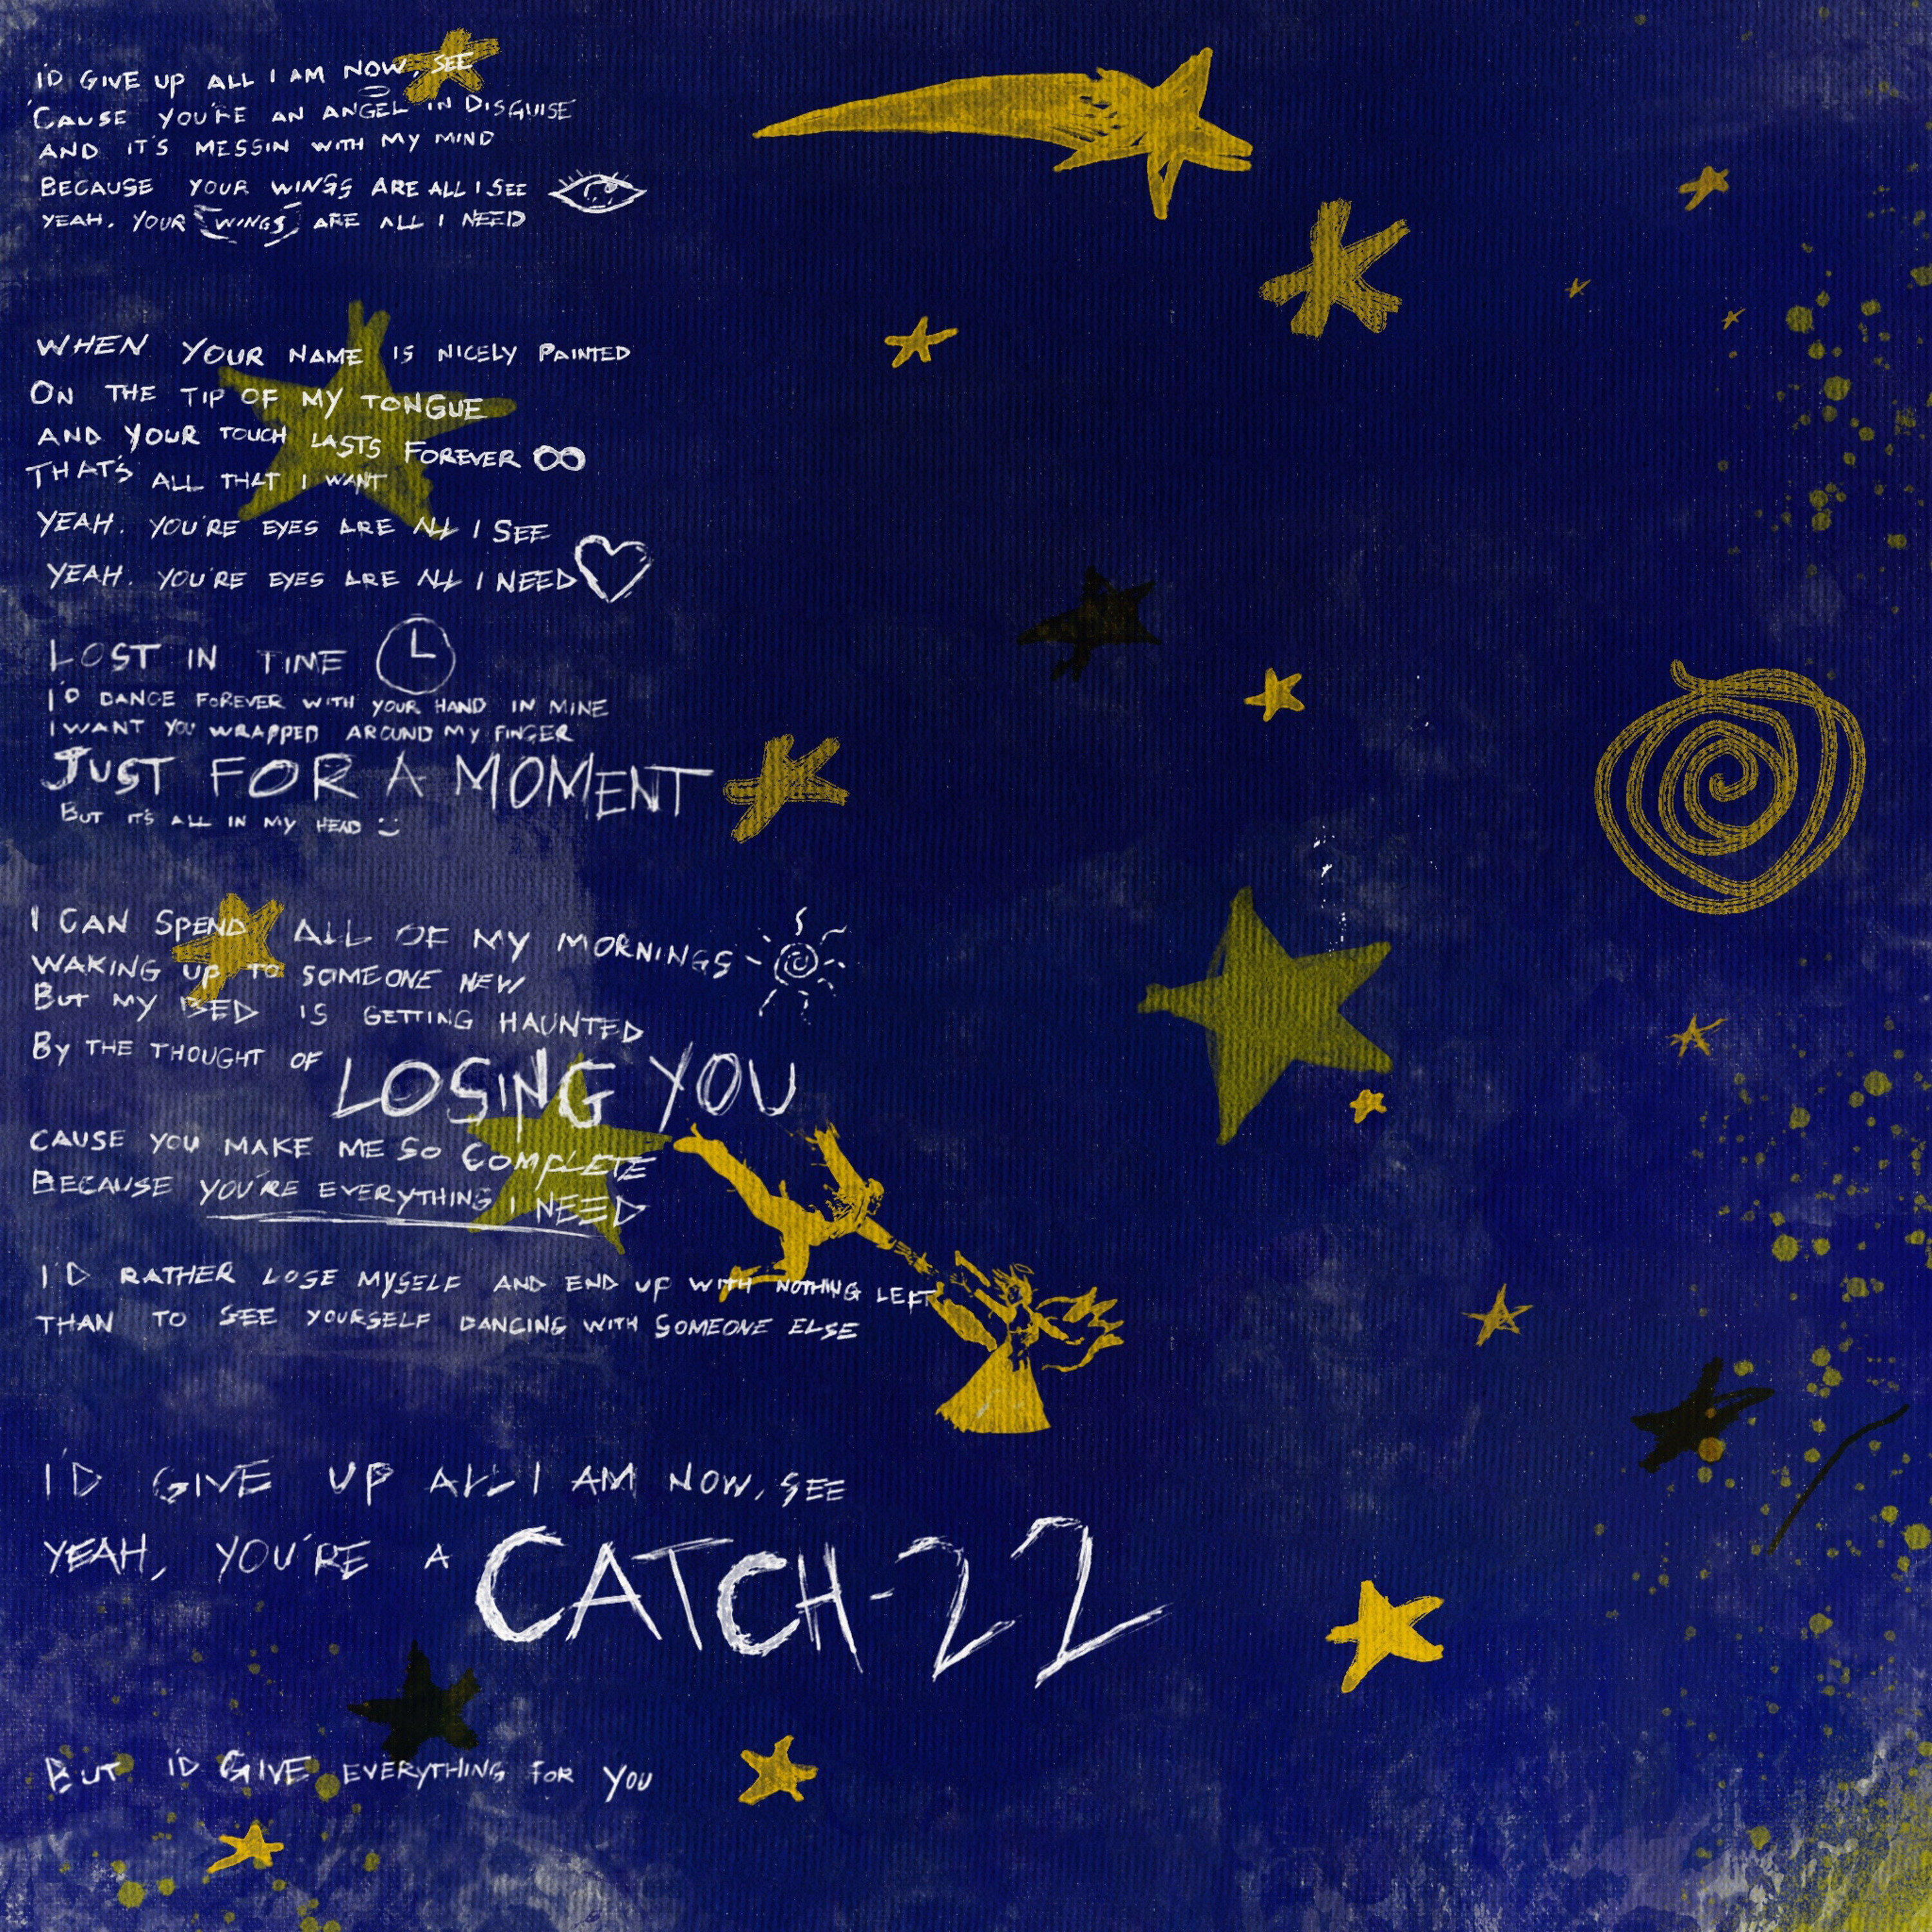 I'D GIVE UP ALL I AM NOW, SEE
'CAUSE YOU'RE AN ANGEL IN DISGUISE
AND IT'S MESSIN WITH MY MIND
BECAUSE YOUR WINGS ARE ALL I SEE
YEAH. YOUR WINGS ARE ALL I NEED
WHEN YOUR NAME IS NICELY PAINTED
ON THE TIP OF MY TONGUE
AND YOUR TOUCH LASTS FOREVER ∞
THAT'S ALL THAT I WANT
YEAH. YOU'RE EYES ARE ALL I SEE
YEAH. YOU'RE EYES ARE ALL I NEED
LOST IN TIME
I'D DANCE FOREVER WITH YOUR HAND IN MINE
I WANT YOU WRAPPED AROUND MY FINGER
JUST FOR A MOMENT
BUT IT'S ALL IN MY HEAD :)
I CAN SPEND ALL OF MY MORNINGS
WAKING UP TO SOMEONE NEW
BUT MY BED IS GETTING HAUNTED
BY THE THOUGHT OF LOSING YOU
CAUSE YOU MAKE ME SO COMPLETE
BECAUSE YOU'RE EVERYTHING I NEED
I'D RATHER LOSE MYSELF AND END UP WITH NOTHING LEFT
THAN TO SEE YOURSELF DANCING WITH SOMEONE ELSE
I'D GIVE UP ALL I AM NOW, SEE
YEAH, YOU'RE A CATCH-22
BUT I'D GIVE EVERYTHING FOR YOU